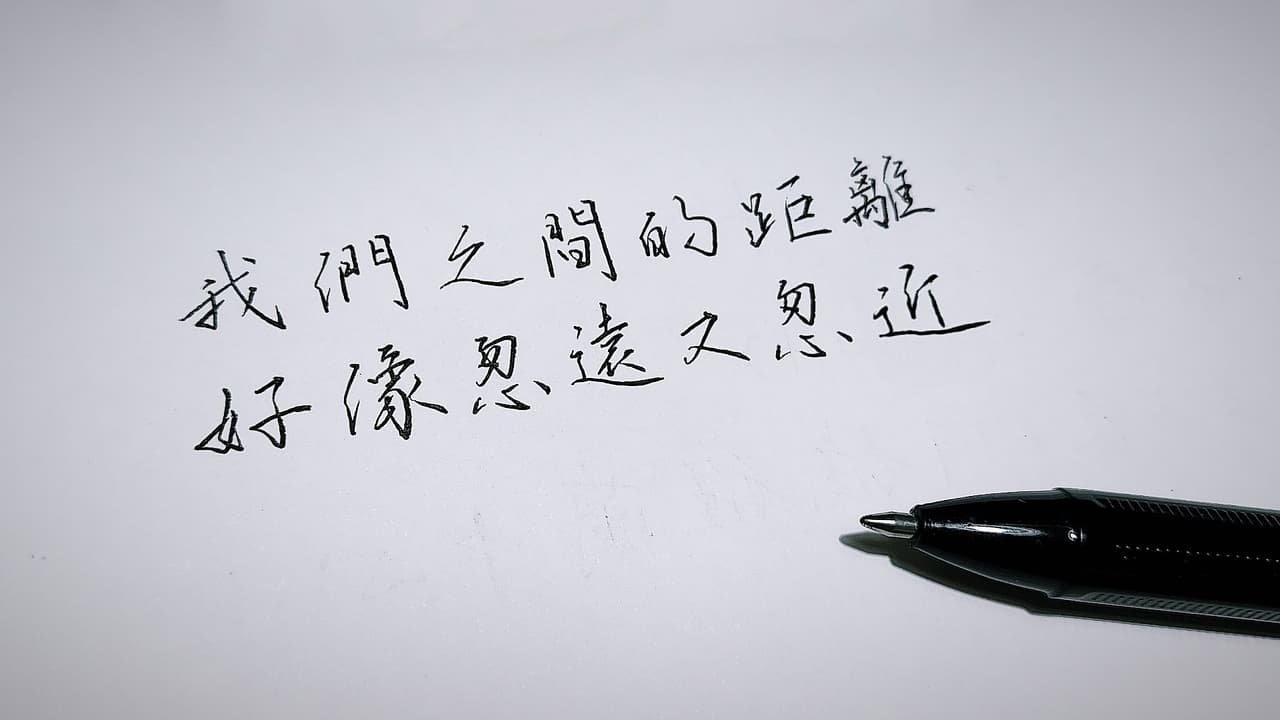 我們之間的距離
好像忽遠又忽近